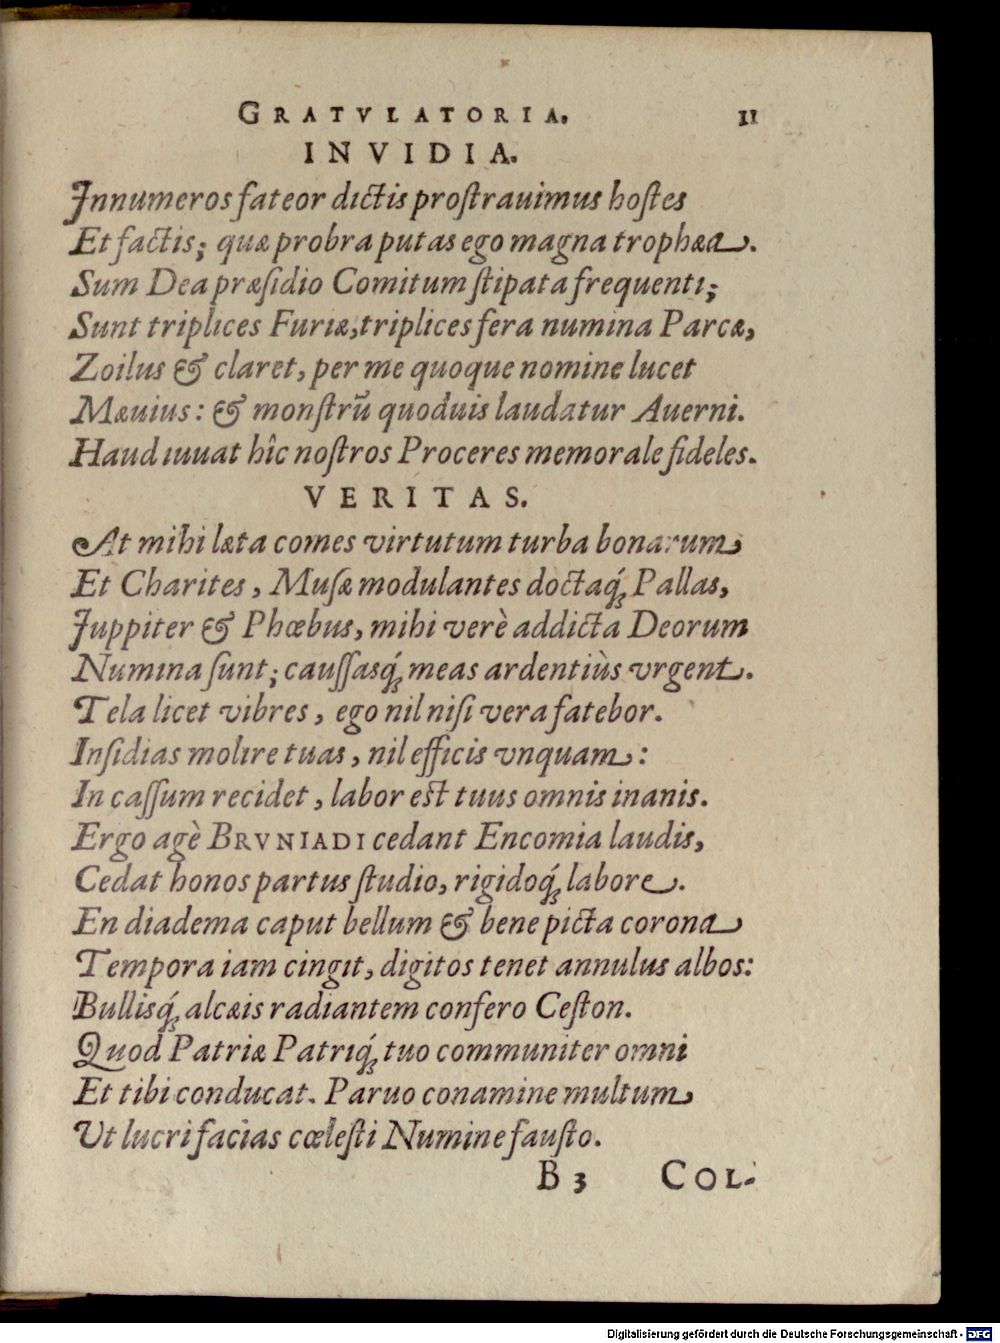 GRATVLATORIA. 11
INVIDIA.
Innumeros fateor dictis proſtrauimus hoſtes
Et factis; quæ probra putas ego magna trophæa.
Sum Dea præſidio Comitum ſtipata frequenti;
Sunt triplices Furiæ, triplices fera numina Parcæ,
Zoilus & claret, per me quoque nomine lucet
Mæuius: & monſtrũ quoduis laudatur Auerni.
Haud iuuat hîc noſtros Proceres memorale fideles.
VERITAS.
At mihi læta comes virtutum turba bonarum
Et Charites, Muſæ modulantes doctaq́; Pallas,
Iuppiter & Phœbus, mihi verè addicta Deorum
Numina ſunt; cauſſasq́; meas ardentiùs vrgent.
Tela licet vibres, ego nil niſi vera fatebor.
Inſidias molire tuas, nil efficis vnquam:
In caſſum recidet, labor eſt tuus omnis inanis.
Ergo agè BRVNIADI cedant Encomia laudis,
Cedat honos partus ſtudio, rigidoq́; labore.
En diadema caput bellum & bene picta corona
Tempora iam cingit, digitos tenet annulus albos:
Bullisq́; alcæis radiantem confero Ceſton.
Quod Patriæ Patriq́; tuo communiter omni
Et tibi conducat. Paruo conamine multum
Ut lucri facias cœleſti Numine fauſto.
B 3 COL-
Digitalisierung gefördert durch die Deutsche Forschungsgemeinschaft - DFG